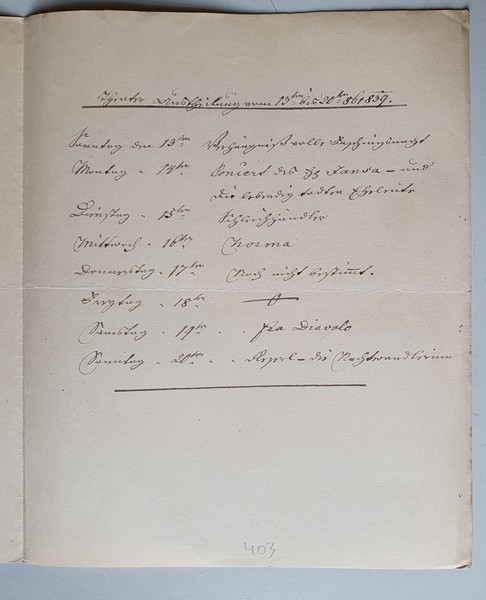 Theater Austheilung vom 13ten bis 20ten 8b 1839.
Sonntag den 13ten Verhängnißvolle Faschingsnacht
Montag " 14ten Concert des H: Jansa – und
die lebendig todten Eheleute
Dienstag " 15ten Schleichhändler
Mittwoch " 16ten Norma
Donnerstag " 17ten Noch nicht bestimmt.
Freytag " 18ten
Samstag " 19ten " Fra Diavolo
Sonntag " 20ten " – die Nachtwandlerinn
403